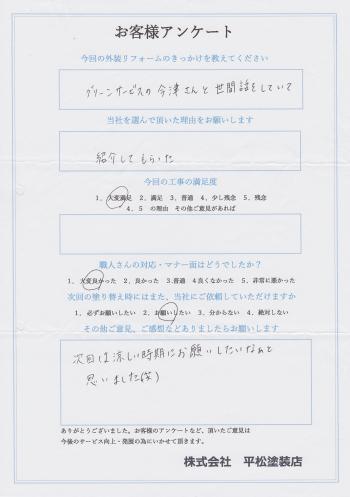 お客様アンケート
今回の外装リフォームのきっかけを教えてください
グリーンサービスの今津さんと世間話をしていて
当社を選んで頂いた理由をお願いします
紹介してもらいた
今回の工事の満足度
1、大変満足 2、満足 3、普通 4、少し残念 5、残念
4、5 の理由 その他ご意見があれば
職人さんの対応・マナー面はどうでしたか?
1、大変良かった 2、良かった 3、普通 4、良くなかった 5、非常に悪かった
次回の塗り替え時にはまた、当社にご依頼していただけますか
1、必ずお願いしたい 2、お願いしたい 3、分からない 4、絶対しない
その他ご意見、ご感想などありましたらお願いします
次回は涼しい時期にお願いしたいなぁと
思いました(笑)
ありがとうございました。お客様のアンケートなど、頂いたご意見は
今後のサービス向上・発展の為にいかせて頂きます。
株式会社 平松塗装店